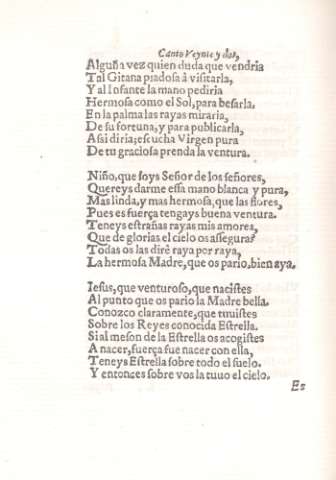 Canto Veynte y dos,
Alguña vez quien duda que vendria
Tal Gitana piadosa à visitarla,
Y al Infante la mano pediria
Hermosa como el Sol, para besarla.
En la palma las rayas miraria,
De su fortuna, y para publicarla,
Assi diria; escucha Virgen pura
De tu graciosa prenda la ventura.
Niño, que soys Señor de los señores,
Quereys darme essa mano blanca y pura,
Mas linda, y mas hermosa, que las flores,
Pues es fuerça tengays buena ventura.
Teneys estrañas rayas mis amores,
Que de glorias el cielo os assegura?
Todas os las dirè raya por raya,
La hermosa Madre, que os pario, bien aya.
Iesus, que venturoso, que nacistes
Al punto que os pario la Madre bella.
Conozco claramente, que tuuistes
Sobre los Reyes conocida Estrella.
Si al meson de la Estrella os acogistes
A nacer, fuerça fue nacer con ella,
Teneys Estrella sobre todo el suelo.
Y entonces sobre vos la tuuo el cielo.
Es